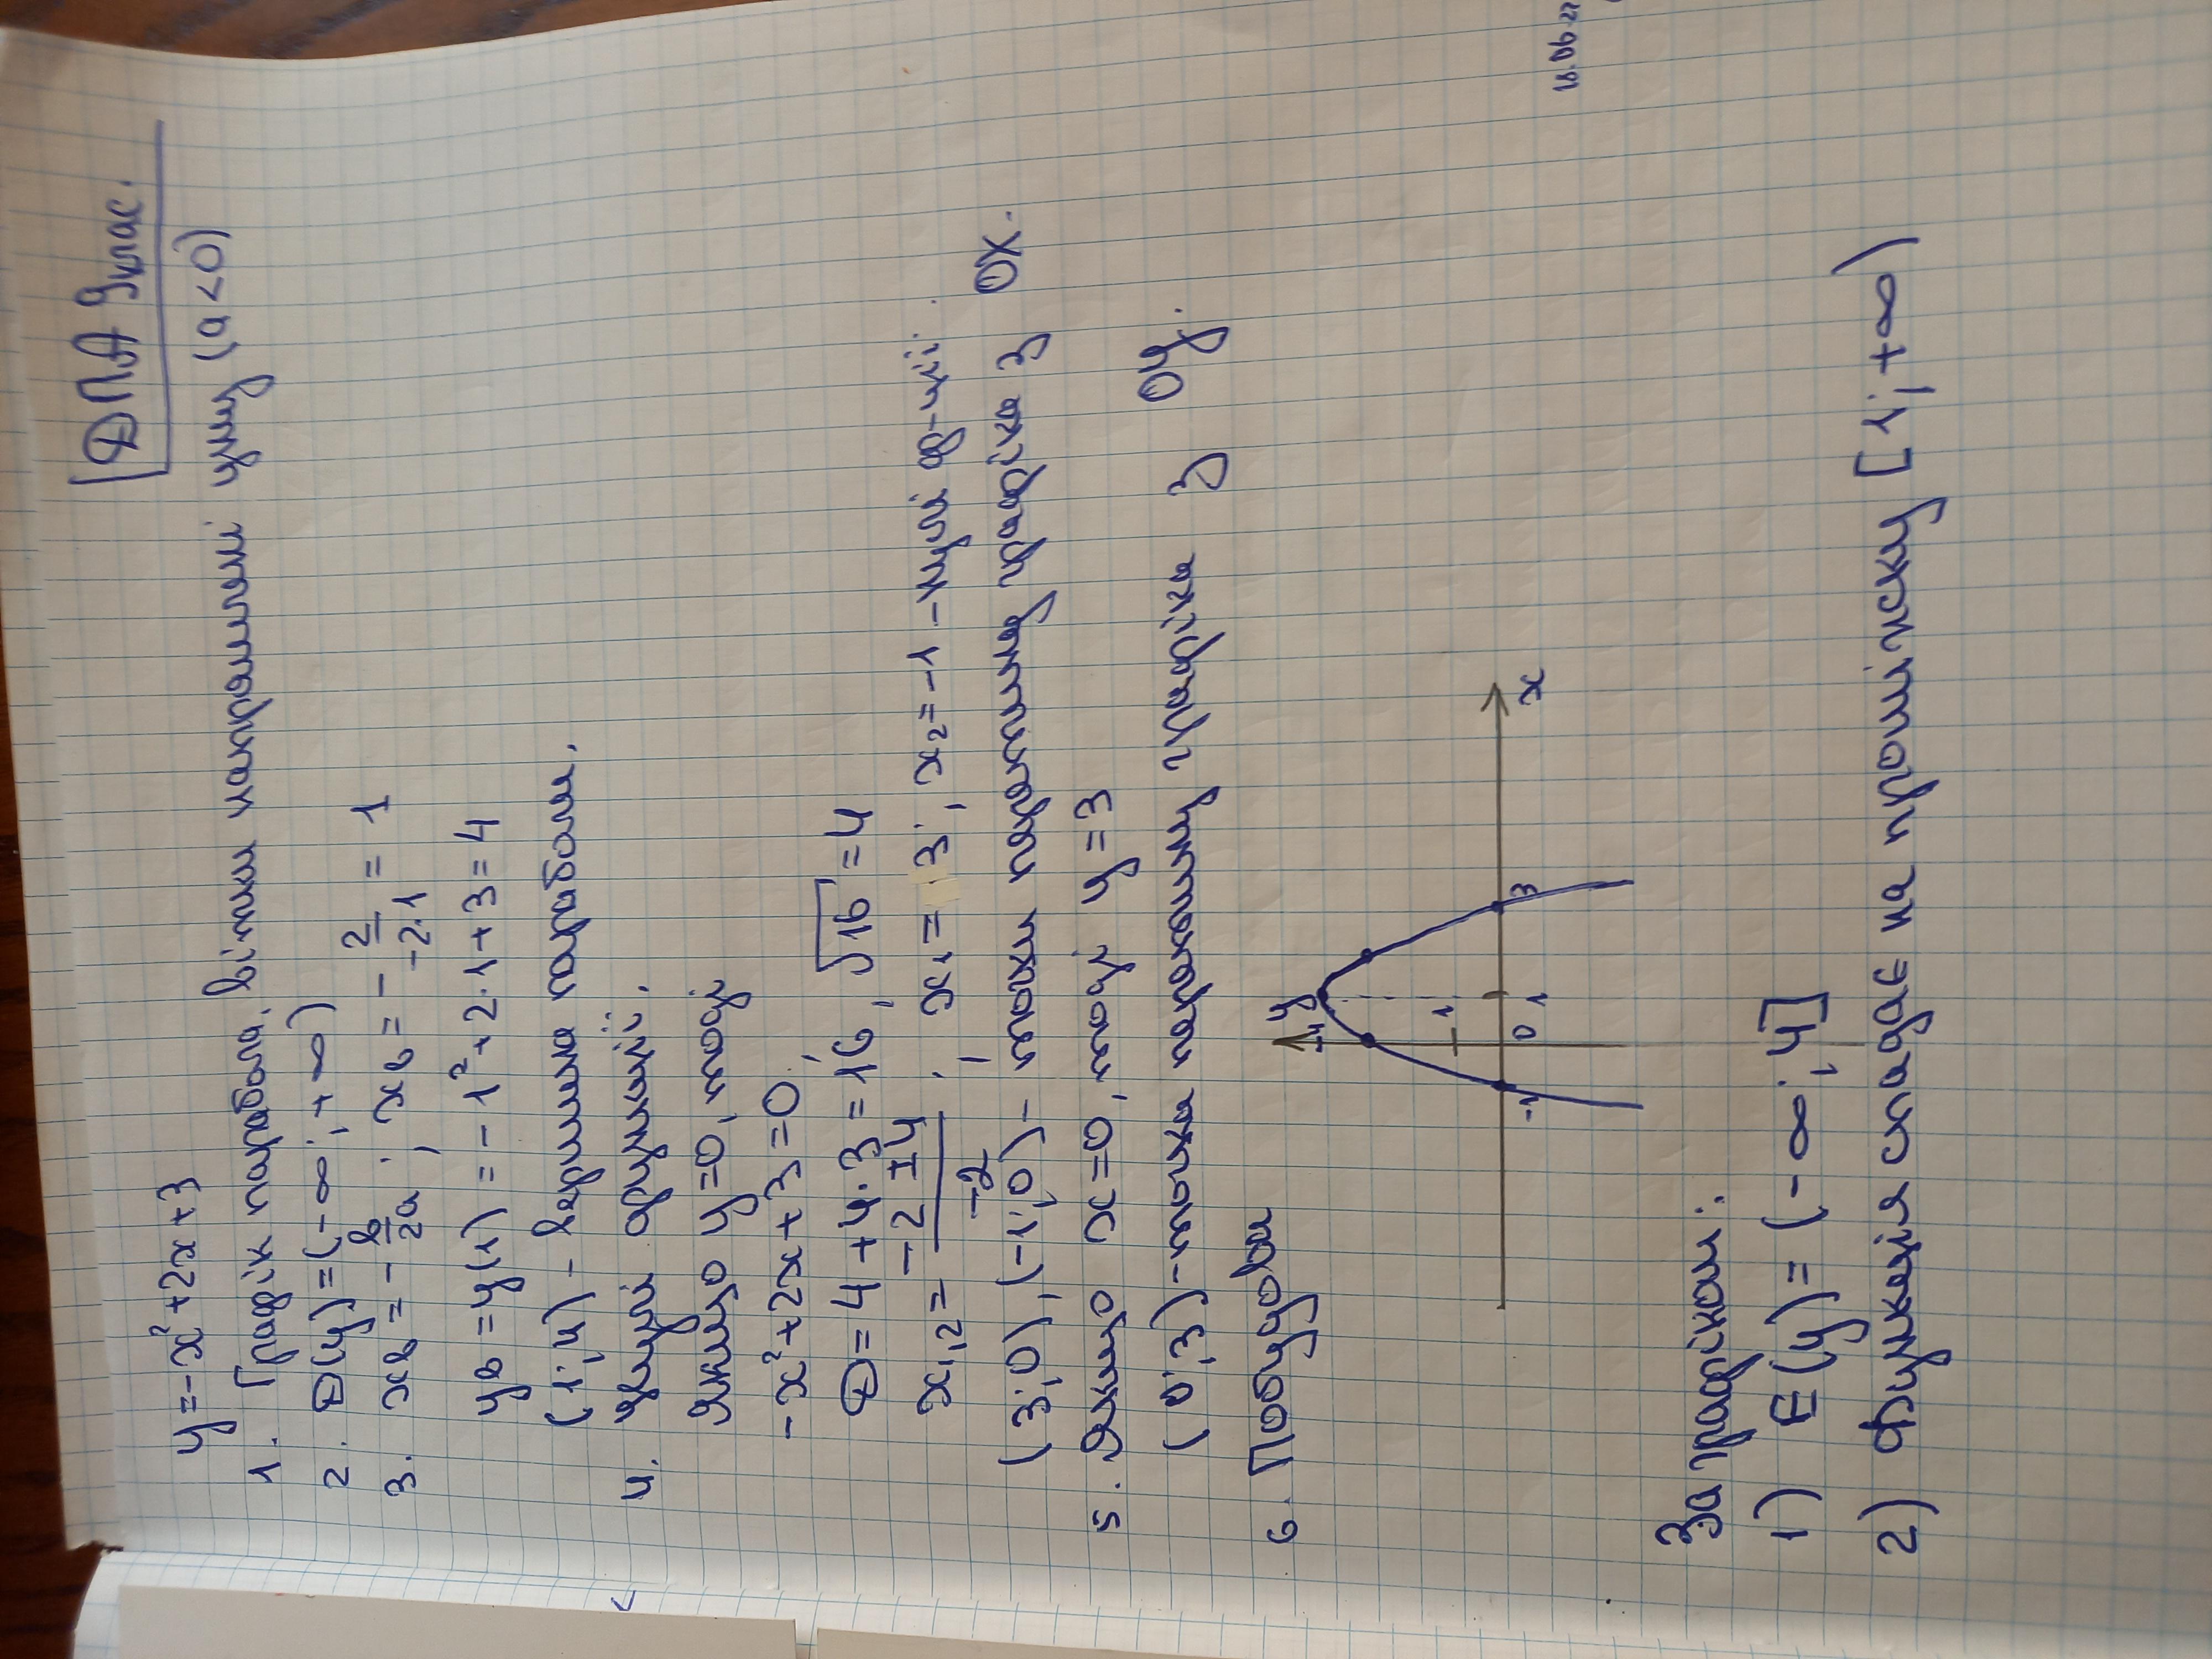 ДПА 9клас.
y=-x²+2x+3
1. Графік парабола, вітки напрямлені униз (a<0)
2. D(y)=(-∞;+∞)
3. xв=-b/2a; xв=-2/-2·1=1
yв=y(1)=-1²+2·1+3=4
(1;4)-вершина параболи.
4. Нулі функції.
Якщо y=0, тоді
-x²+2x+3=0,
D=4+4·3=16, √16=4
x1,2=-2±4/-2; x1=3; x2=-1-нулі ф-ції.
(3;0),(-1;0)- точки перетину графіка з OX.
5. Якщо x=0, тоді y=3
(0;3)-точка перетину графіка з Oy.
6. Побудова
y
4
1
-1 0 1 3 x
За графіком:
1) E(y)=(-∞;4]
2) Функція спадає на проміжку [1;+∞)
18.06.22